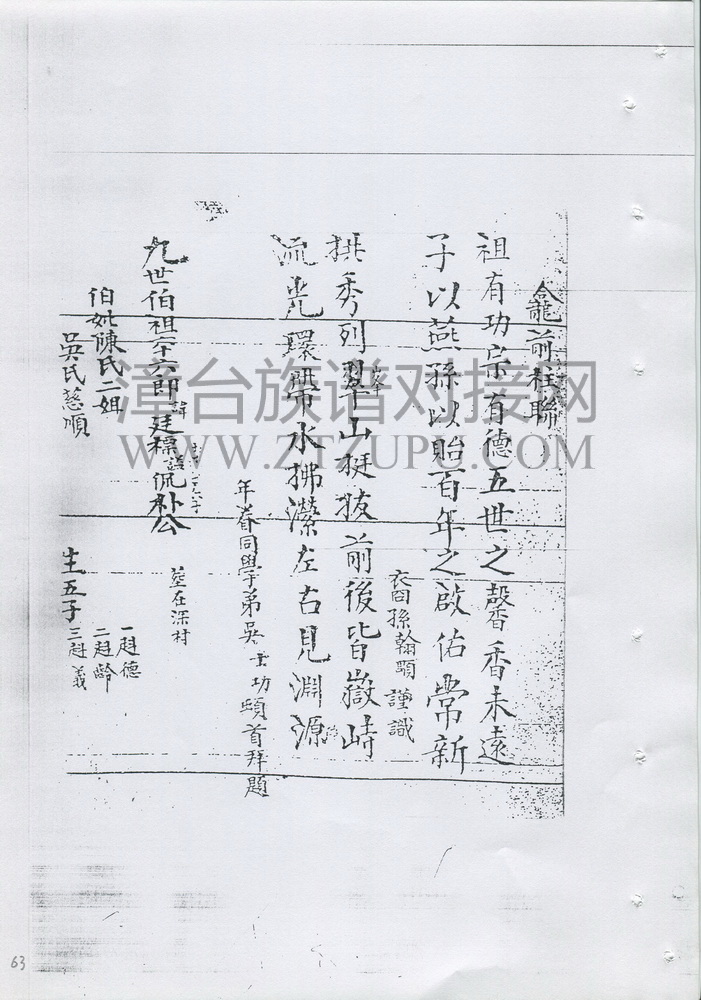 龕前柱聯
祖有功宗有德五世之馨香未遠
子以燕孫以貽百年之啟佑常新
裔孫翰頭謹識
排秀列翠山挺拔前後皆嶽峙
流光環帶水拂瀠左右見淵源
年眷同學弟吳士功頓首拜題
九世伯祖六郎諱廷標諡侃朴公
塟在深村
伯妣陳氏二姐
吳氏慈順
生五子
一尌德
二尌齡
三尌義
漳台族谱对接网
WWW.ZTZUPU.COM
63